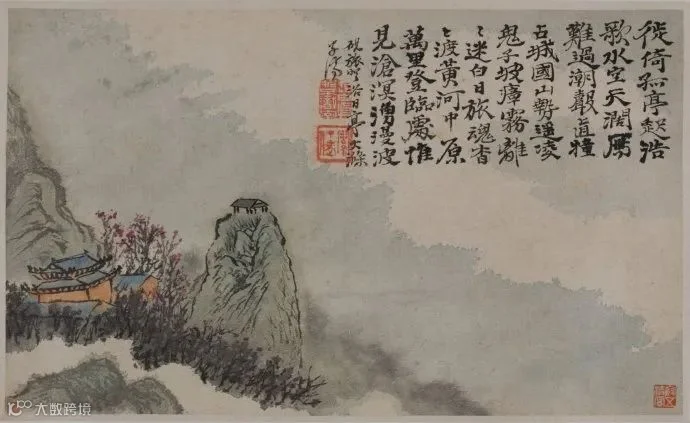 徙倚孤亭起浩
歌水空天濶鴈
難過潮聲直撞
占城國山勢遥凌
鬼子坡瘴霧離
〻迷白日旅魂杳
〻渡黃河中原
萬里登臨處惟
見滄溟漫波
硯旅浴日亭大滌
子
大数跨境